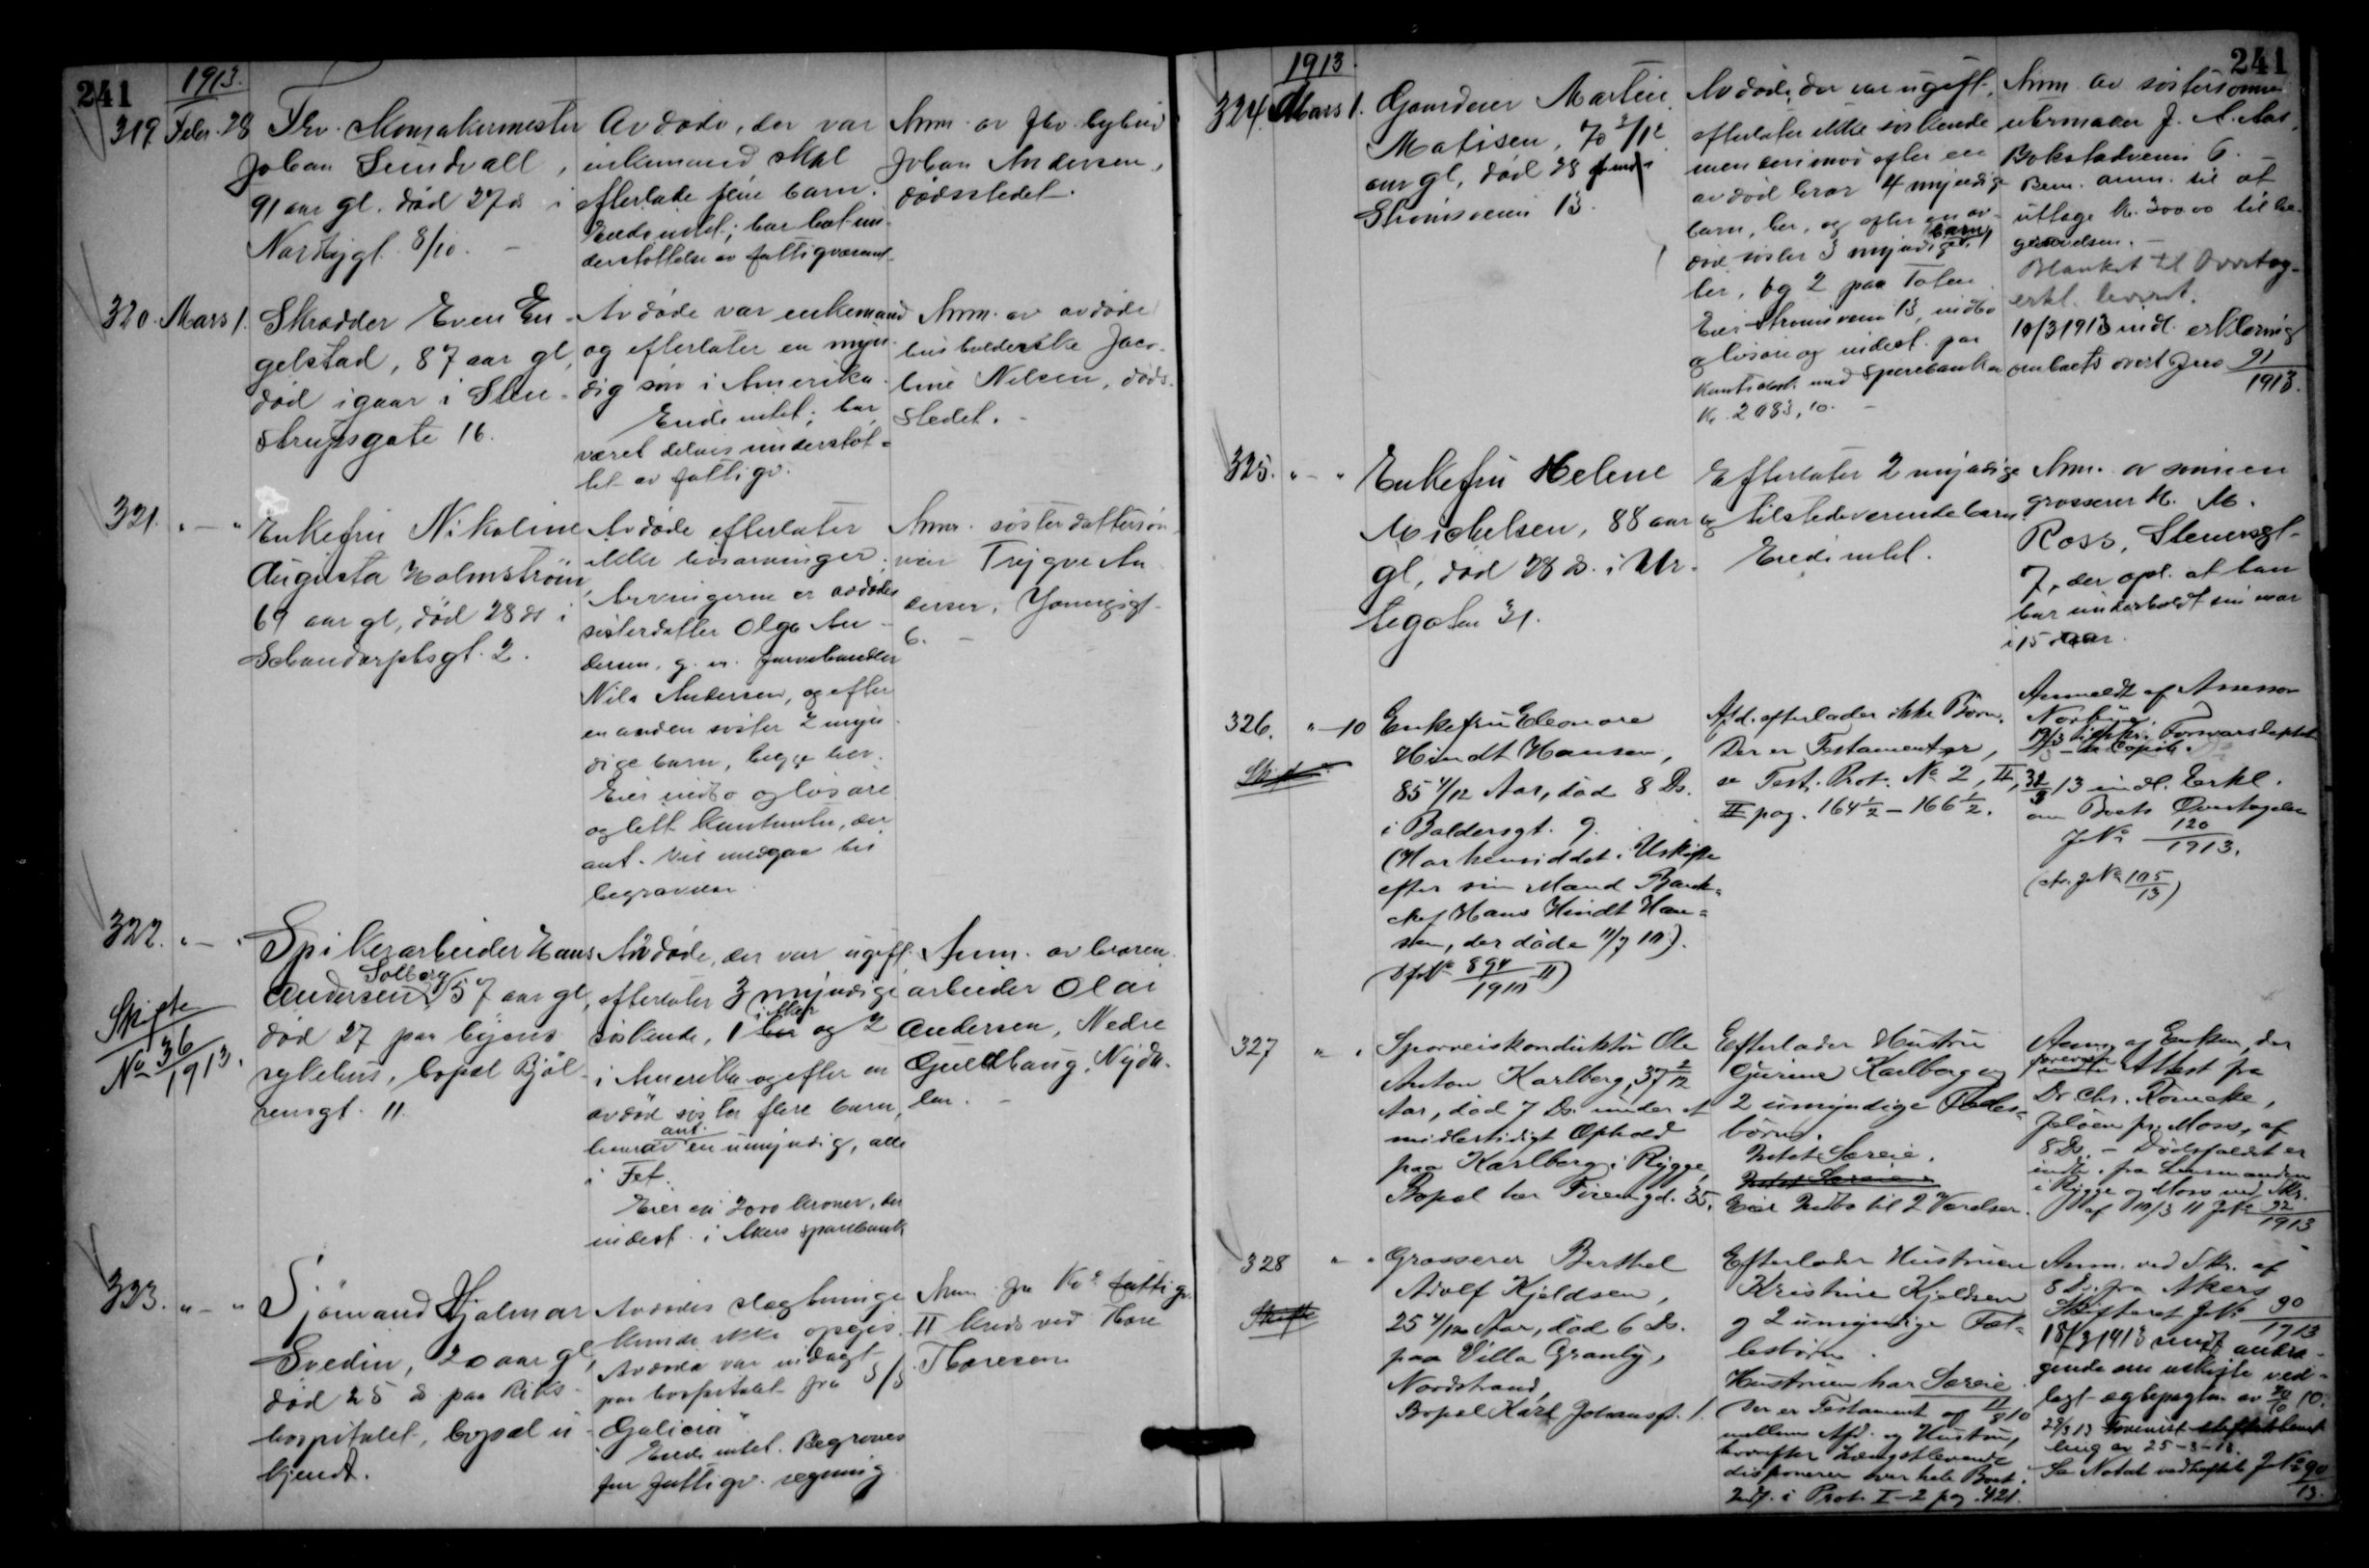 241
1913.
319 Febr. 28
Fhv. Skomakermester
Johan Sundvall,
91 aar gl. død 27 ds i
Nordbygt. 8/10. –
Avdøde, der var
enkemand skal
efterlate flere barn.
Eiede intet; har hat un-
derstøttelse av fattigvæsenet.
Anm. av fhv. bybud
Johan Andersen,
dødsstedet.
320. Mars 1.
Skrædder Even En-
gelstad, 87 aar gl,
død igaar i Sten-
strupsgate 16.
Avdøde var enkemand
og efterlater en myn-
dig søn i Amerika.
Eiede intet; har
været delvis understøt-
tet av fattigv.
Anm. av avdødes
husholderske Jaco-
bine Nilsen, døds-
stedet. –
321. " – "
Enkefru Nikoline
Augusta Holmstrøm,
69 aar gl, død 28 ds i
Schandorphsgt. 2.
Avdøde efterlater
ikke livsarvinger.
Arvingerne er avdødes
søsterdatter Olga An-
dersen, g. m. farvehandler
Nils Andersen, og efter
en anden søster 2 myn-
dige barn, begge her.
Eier indbo og løsøre
og litt kontanter, der
ant. vil medgaa til
begravelsen.
Anm. søsterdattersøn-
nen Trygve An-
dersen, Youngsgt.
6. –
322. " – "
Skifte
No 36
1913.
Spikerarbeider Hans
Solberg
Andersen, 57 aar gl,
død 27 paa byens
sykehus, bopæl Bjøl-
sensgt. 11.
Avdøde, der var ugift.
efterlater 3 myndige
i Aker
søskende, 1 her og 2
i Amerika og efter en
avdød søster flere barn,
ant.
hvorav en umyndig, alle
i Fet.
Eier ca 2000 kroner, der
indest. i Akers sparebank
Anm. av broren
arbeider Olai
Andersen, Nedre
Guldhaug, Nyda-
len. –
323. " – "
Sjømand Hjalmar
Svedin, 20 aar gl,
død 25 ds paa Riks-
hospitalet, bopæl u-
kjendt.
Avdødes slegtninge
kunde ikke opgis.
Avdøde var indlagt
paa hospitalet fra S/S
"Galicia"
Eiede intet. Begraves
for fattigv. regning
Anm. fra Kra fattigv.
II kreds ved Thore
Thoresen
241
1913.
324. Mars 1.
Gaardeier Martin
Matisen, 70 2/12
aar gl, død 28 f.md. i
Strømsveien 13.
Avdøde, der var ugift,
efterlater ikke søskende
men derimot efter en
avdød bror 4 myndige
barn, her, og efter en av-
barn
død søster 3 myndige,
her, og 2 paa Toten.
Eier Strømsveien 13, indbo
og løsøre og indest. paa
Kontrabok med Sparebanken
Kr. 2083,10. –
Anm. av søstersønnen
urmaker J. A. Aas,
Bokstadveien 6. –
Bem. anm. til at
uttage kr. 300 00 til be-
gravelsen. –
Blanket til Overtag-
erkl. levert.
10/3 1913 indl. erklæring
om boets overt. Jno 91
1913.
325. " – "
Enkefru Helene
Michelsen, 88 aar
gl, død 28 ds. i Ur-
tegaten 31.
Efterlater 2 myndige
og tilstedeværende barn.
Eiede intet.
Anm. av sønnen
grosserer H. M.
Ross, Stenersgt.
7, der opl. at han
har underholdt sin mor
i 15 aar.
326. " – 10
Skifte
Enkefru Eleonore
Hindt Hansen,
85 4/12 Aar, død 8 Ds.
i Baldersgt. 9.
(Har hensiddet i Uskifte
efter sin Mand Bank-
chef Hans Hindt Han-
sen, der døde 11/7 10).
894
1910 II)
Afd. efterlader ikke Børn.
Der er Testamenter,
se Test. Prot. No 2, II,
II pag. 164 1/2 – 166 1/2.
Anmeldt af Assessor
13 indl. Erkl.
om Boets Overtagelse
J No 120
1913.
(cfr. J No 105
13)
327 " "
Sporveiskonduktør Ole
Anton Karlberg, 37 2/12
Aar, død 7 Ds. under et
midlertidigt Ophold
paa Karlberg i Rygge,
Bopæl her Tireugd. 35.
Efterlader Hustru
Gurine Karlberg og
2 umyndige Fælles-
børn.
Intet Særeie.
Intet Særeie.
Eier Indbo til 2 Værelser.
Anm. af Enken, der
foreviste Attest fra
Dr. Chr. Romcke,
Jeløen pr. Moss, af
8 Ds. – Dødsfaldet er
indb. fra Lensmanden
i Rygge og Moss ved Skr.
af 10/3 11 J No 92
1913
328 " "
Skifte
Grosserer Berthel
Adolf Kjeldsen,
25 4/12 Aar, død 6 Ds.
paa Villa Granly,
Nordstrand,
Bopæl Karl Johansgt. 1.
Efterlader Hustruen
Kristine Kjeldsen
og 2 umyndige Fæl-
lesbørn.
Hustruen har Særeie.
Der er Testament af II/8 10
mellem Afd. og Hustru,
hvorefter Længstlevende
disponerer over hele Boet.
Indf. i Prot. I–2 pag. 421.
Anm. ved Skr. af
8 Ds. fra Akers
Skifteret J No 90
1913
18/3 1913 indk andra-
gende om uskifte ved-
lagt ægtepagten av 10.
ling av 25-3-13.
Se Notat vedheftet J No 90
13.